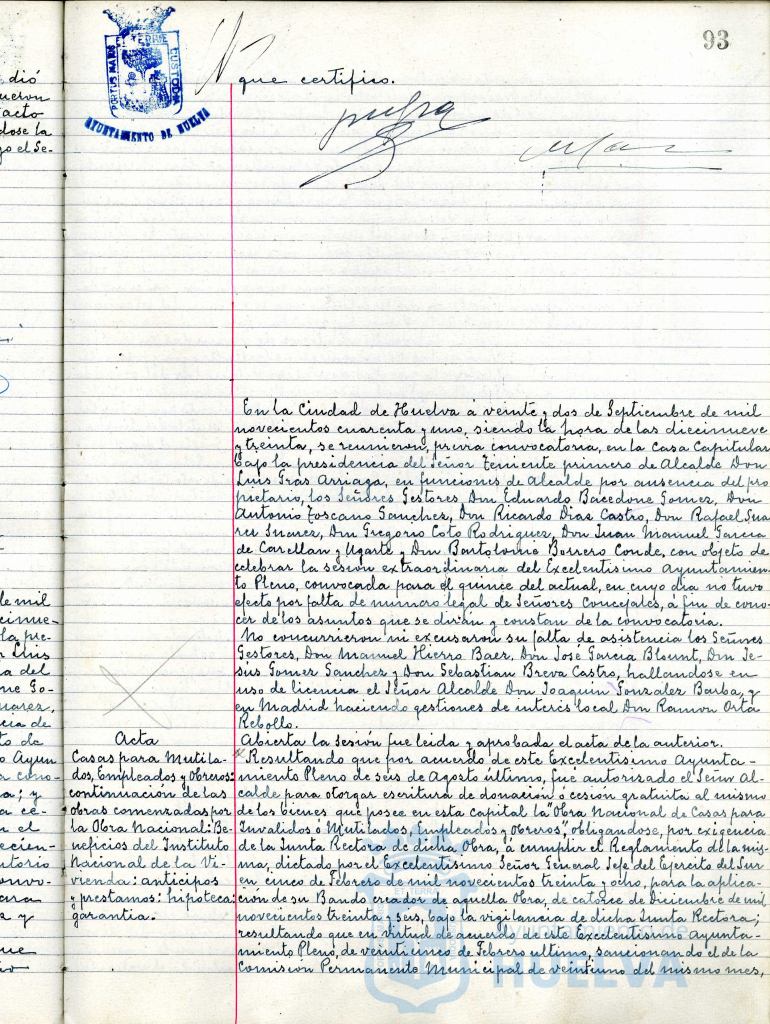 93
PORTUS MARIS ET TERRE CUSTODIA
AYUNTAMIENTO DE HUELVA
que certifico.
dió
ueron
acto
dose la
yo el Se-
En la Ciudad de Huelva á veinte y dos de Septiembre de mil
novecientos cuarenta y uno, siendo la hora de las diecinueve
y treinta, se reunieron, previa convocatoria, en la Casa Capitular
bajo la presidencia del Señor Teniente primero de Alcalde Don
Luis Gras Arriaga, en funciones de Alcalde por ausencia del pro
pietario, los Señores Gestores Don Eduardo Bacedone Gomez, Don
Antonio Toscano Sanchez, Don Ricardo Dias Castro, Don Rafael Sua
rez Suarez, Don Gregorio Coto Rodriguez, Don Juan Manuel Garcia
de Carellan y Ugarte y Don Bartolomé Borrero Conde, con objeto de
celebrar la sesión extraordinaria del Excelentisimo Ayuntamien
to Pleno, convocada para el quince del actual, en cuyo dia no tuvo
efecto por falta de numero legal de Señores Concejales, á fin de cono-
cer de los asuntos que se dirán y constan de la convocatoria.
No concurrieron ni excusaron su falta de asistencia los Señores
Gestores, Don Manuel Hierro Baez, Don José Garcia Blount, Don Je-
sús Gomez Sanchez y Don Sebastian Breva Castro, hallandose en
uso de licencia el Señor Alcalde Don Joaquin Gonzalez Barba, y
en Madrid haciendo gestiones de interés local Don Ramon Orta
Rebollo.
Abierta la sesión fue leida y aprobada el acta de la anterior.
Resultando que por acuerdo de este Excelentisimo Ayunta-
miento Pleno de seis de Agosto último, fue autorizado el Señor Al
calde para otorgar escritura de donación ó cesión gratuita al mismo
de los bienes que posee en esta capital la "Obra Nacional de Casas para
Invalidos ó Mutilados, Empleados y Obreros", obligandose, por exigencia
de la Junta Rectora de dicha Obra, á cumplir el Reglamento de la mis-
ma, dictado por el Excelentisimo Señor General Jefe del Ejercito del Sur
en cinco de Febrero de mil novecientos treinta y ocho, para la aplica-
ción de su Bando creador de aquella Obra, de catorce de Diciembre de mil
novecientos treinta y seis, bajo la vigilancia de dicha Junta Rectora;
resultando que en virtud de acuerdo de este Excelentisimo Ayunta-
miento Pleno, de veinticinco de Febrero ultimo, sancionando el de la
Comisión Permanente Municipal de veintiuno del mismo mes,
Acta
Casas para Mutila-
dos, Empleados y Obreros:
continuación de las
obras comenzadas por
la Obra Nacional: Be-
neficios del Instituto
Nacional de la Vi-
vienda: anticipos
y prestamos: hipoteca:
garantia.
de mil
cinue-
la pre-
Luis
a del
ne Go-
uarez,
cia de
to de
o Ayun
a cono-
a; y
a ce-
n el
ecien-
utorio
onvo-
ara
s y
que
Ayuntamiento de
HUELVA